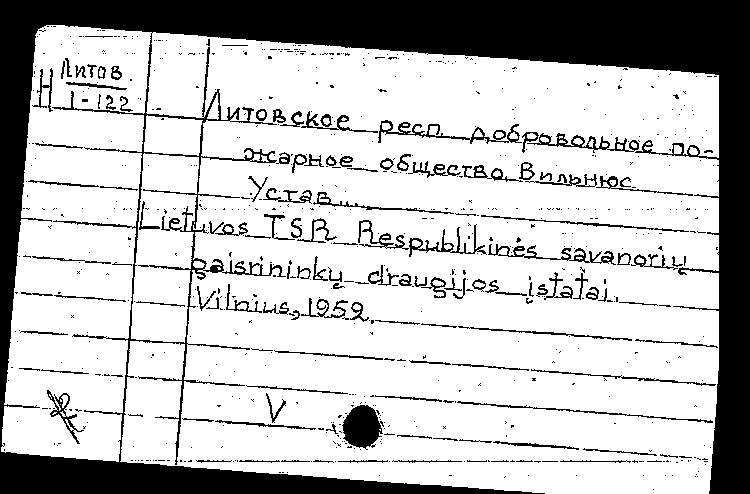 Н Литов.
1-122
Литовское респ. добровольное по-
жарное общество. Вильнюс
Устав...
Lietuvos TSR Respublikinės savanorių
gaisrininkų draugijos įstatai.
Vilnius, 1959.
V